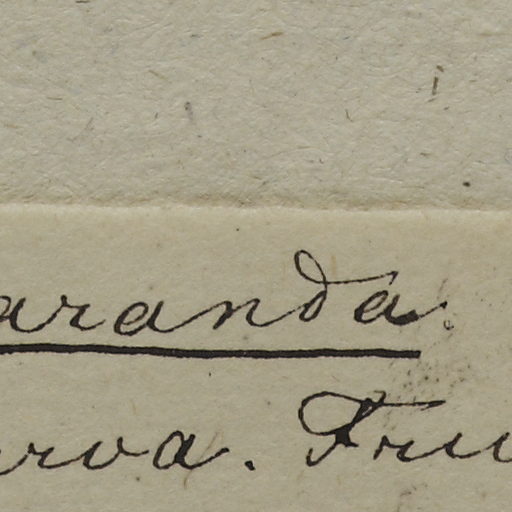 aranda.
rva. Fru